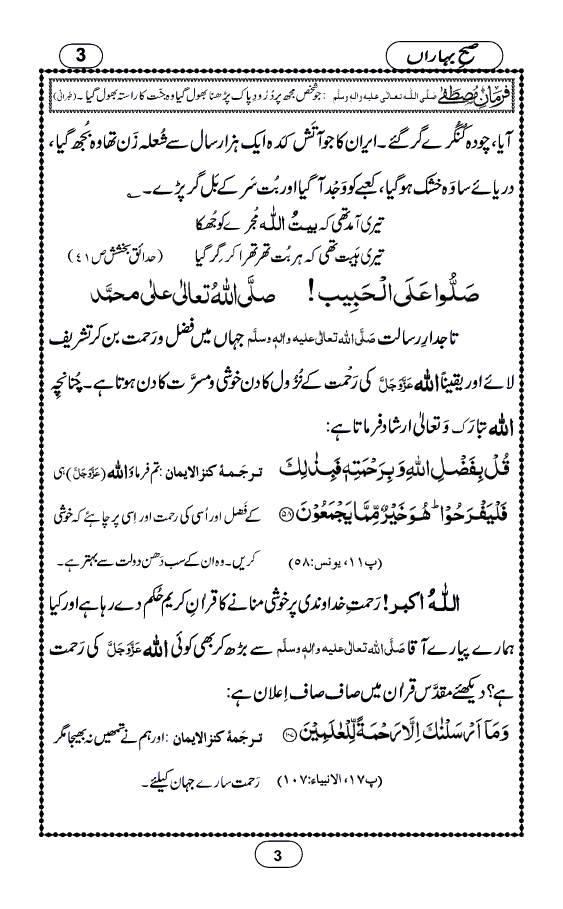 صبحِ بہاراں
3
فرمانِ مصطفٰے صلَّی اللہ تعالٰی علیہ والہٖ وسلَّم : جو شخص مجھ پر دُرُودِ پاک پڑھنا بھول گیا وہ جنّت کا راستہ بھول گیا ۔ (طبرانی)
آیا، چودہ کُنگُرے گر گئے ۔ ایران کا جو آتَش کدہ ایک ہزار سال سے شُعلہ زَن تھا وہ بُجھ گیا ،
دریائے ساوَہ خشک ہو گیا ، کعبے کو وَجْد آ گیا اور بُت سَر کے بَل گر پڑے ۔
تیری آمد تھی کہ بیتُ اللّٰہ مُجرے کو جُھکا
تیری ہَیبت تھی کہ ہر بُت تھر تھرا کر گِر گیا (حدائق بخشش ص ٤١)
صَلُّوا عَلَی الْحَبِیب ! صلَّی اللّٰہُ تعالٰی علٰی محمَّد
تاجدارِ رسالت صَلَّی اللہ تعالٰی علیہ والہٖ وسلَّم جہاں میں فضل و رَحمت بن کر تشریف
لائے اور یقیناً اللّٰہ عَزَّوَجَلَّ کی رَحْمت کے نُزُول کا دن خوشی و مسرّت کا دن ہوتا ہے ۔ چُنانچِہ
اللّٰہ تبارَک وَ تعالٰی ارشاد فرماتا ہے :
قُلْ بِفَضْلِ اللّٰهِ وَ بِرَحْمَتِهٖ فَبِذٰلِكَ ترجَمۂ کنزالایمان : تم فرماؤ اللّٰہ (عَزَّوَجَلَّ) ہی
فَلْیَفْرَحُوْا ؕ هُوَ خَیْرٌ مِّمَّا یَجْمَعُوْنَ ﴿۵۸﴾ کے فَضل اور اُسی کی رحمت اور اِسی پر چاہئے کہ خوشی
(پ١١، یونس:٥٨) کریں ۔ وہ ان کے سب دَھن دولت سے بہتر ہے ۔
اللّٰہُ اکبر! رَحمتِ خداوندی پر خوشی منانے کا قراٰنِ کریم حُکم دے رہا ہے اور کیا
ہمارے پیارے آقا صَلَّی اللہ تعالٰی علیہ والہٖ وسلَّم سے بڑھ کر بھی کوئی اللّٰہ عَزَّوَجَلَّ کی رَحمت
ہے؟ دیکھئے مقدَّس قراٰن میں صاف صاف اِعلان ہے :
وَ مَاۤ اَرْسَلْنٰكَ اِلَّا رَحْمَةً لِّلْعٰلَمِیْنَ ﴿۱۰۷﴾ ترجَمۂ کنزالایمان : اور ہم نے تمھیں نہ بھیجا مگر
(پ١٧، الانبیاء:١٠٧) رَحمت سارے جہان کیلئے ۔
3